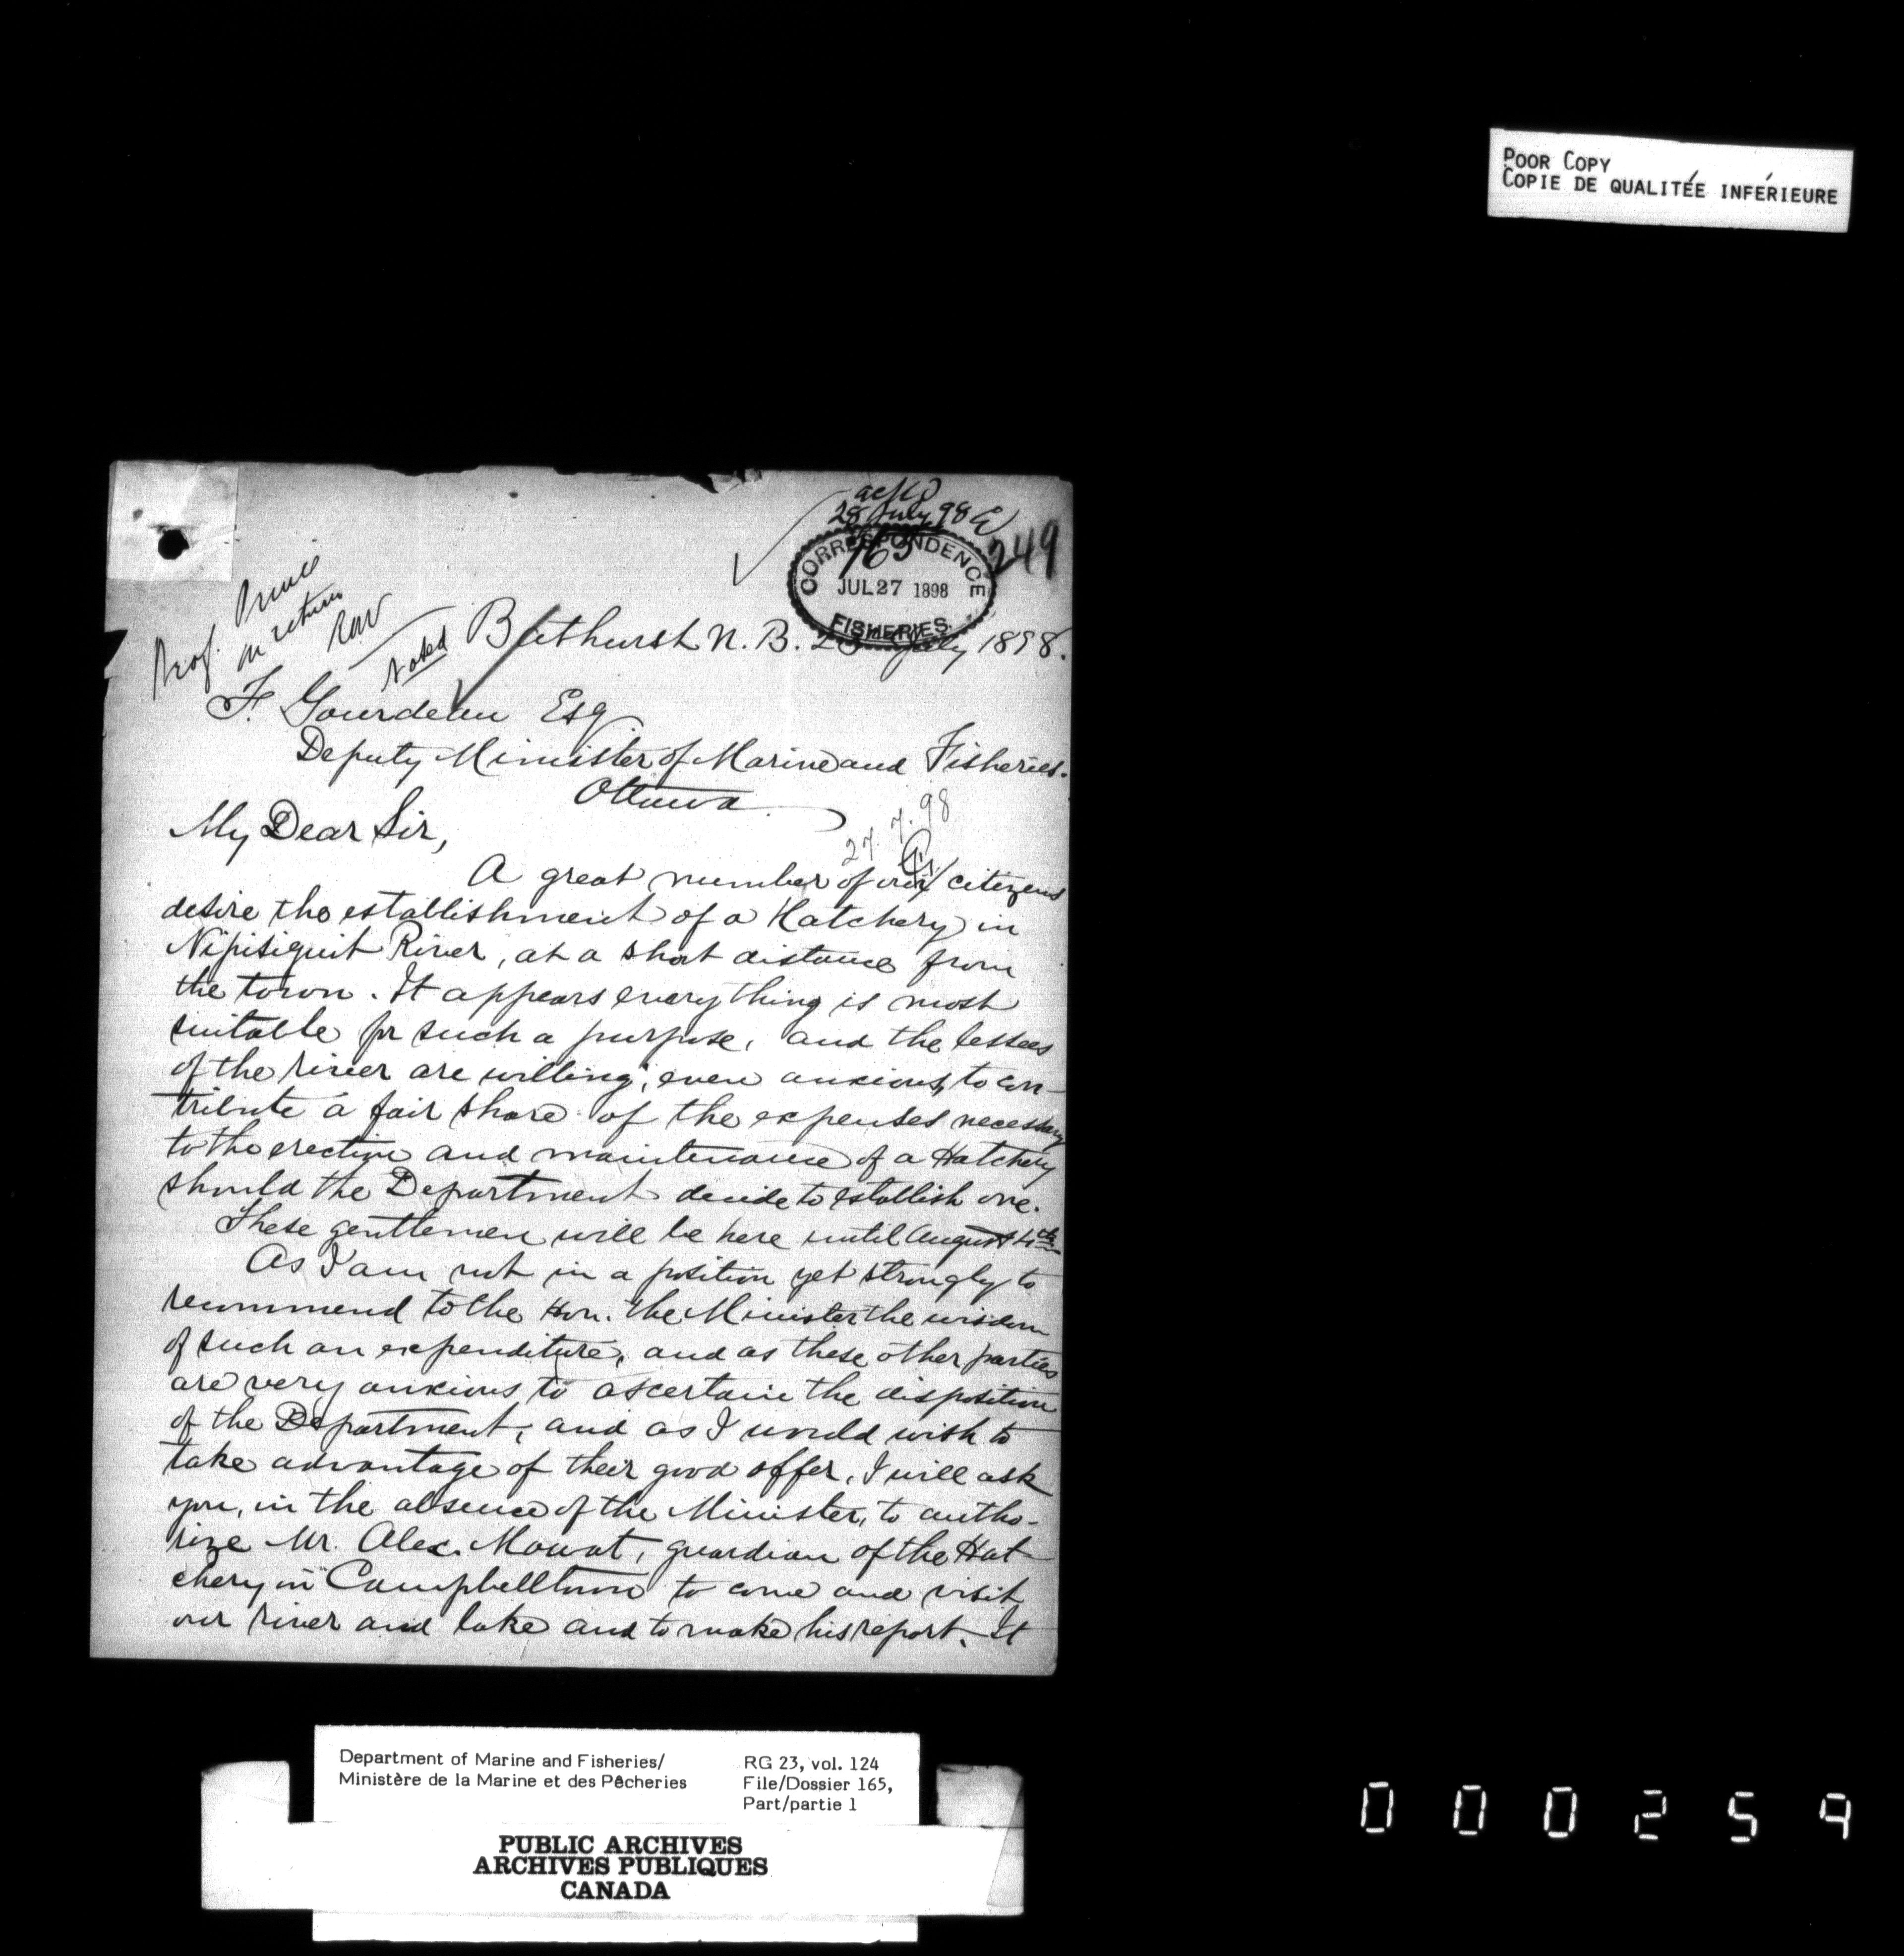 POOR COPY
COPIE DE QUALITÉE INFÉRIEURE
ack'd
28 July 98
249
CORRESPONDENCE
165
JUL 27 1898
FISHERIES.
Prof. Prince
on return
Noted
Bathurst N. B. July 1898.
F. Gourdeau Esq.
Deputy Minister of Marine and Fisheries.
Ottawa
27.7.98
My Dear Sir,
A great number of our citizens
desire the establishment of a Hatchery in
Nipisiguit River, at a short distance from
the town. It appears everything is most
suitable for such a purpose, and the lessees
of the river are willing, even anxious, to con-
tribute a fair share of the expenses necessary
to the erection and maintenance of a Hatchery
should the Department decide to establish one.
These gentlemen will be here until August 4th
As I am not in a position yet strongly to
recommend to the Hon. the Minister the wisdom
of such an expenditure, and as these other parties
are very anxious to ascertain the disposition
of the Department, and as I would wish to
take advantage of their good offer, I will ask
you, in the absence of the Minister, to autho-
rize Mr. Alex. Mowat, guardian of the Hat-
chery in Campbellton to come and visit
our river and lake and to make his report. It
Department of Marine and Fisheries/
Ministère de la Marine et des Pêcheries
RG 23, vol. 124
File/Dossier 165,
Part/partie 1
PUBLIC ARCHIVES
ARCHIVES PUBLIQUES
CANADA
000259